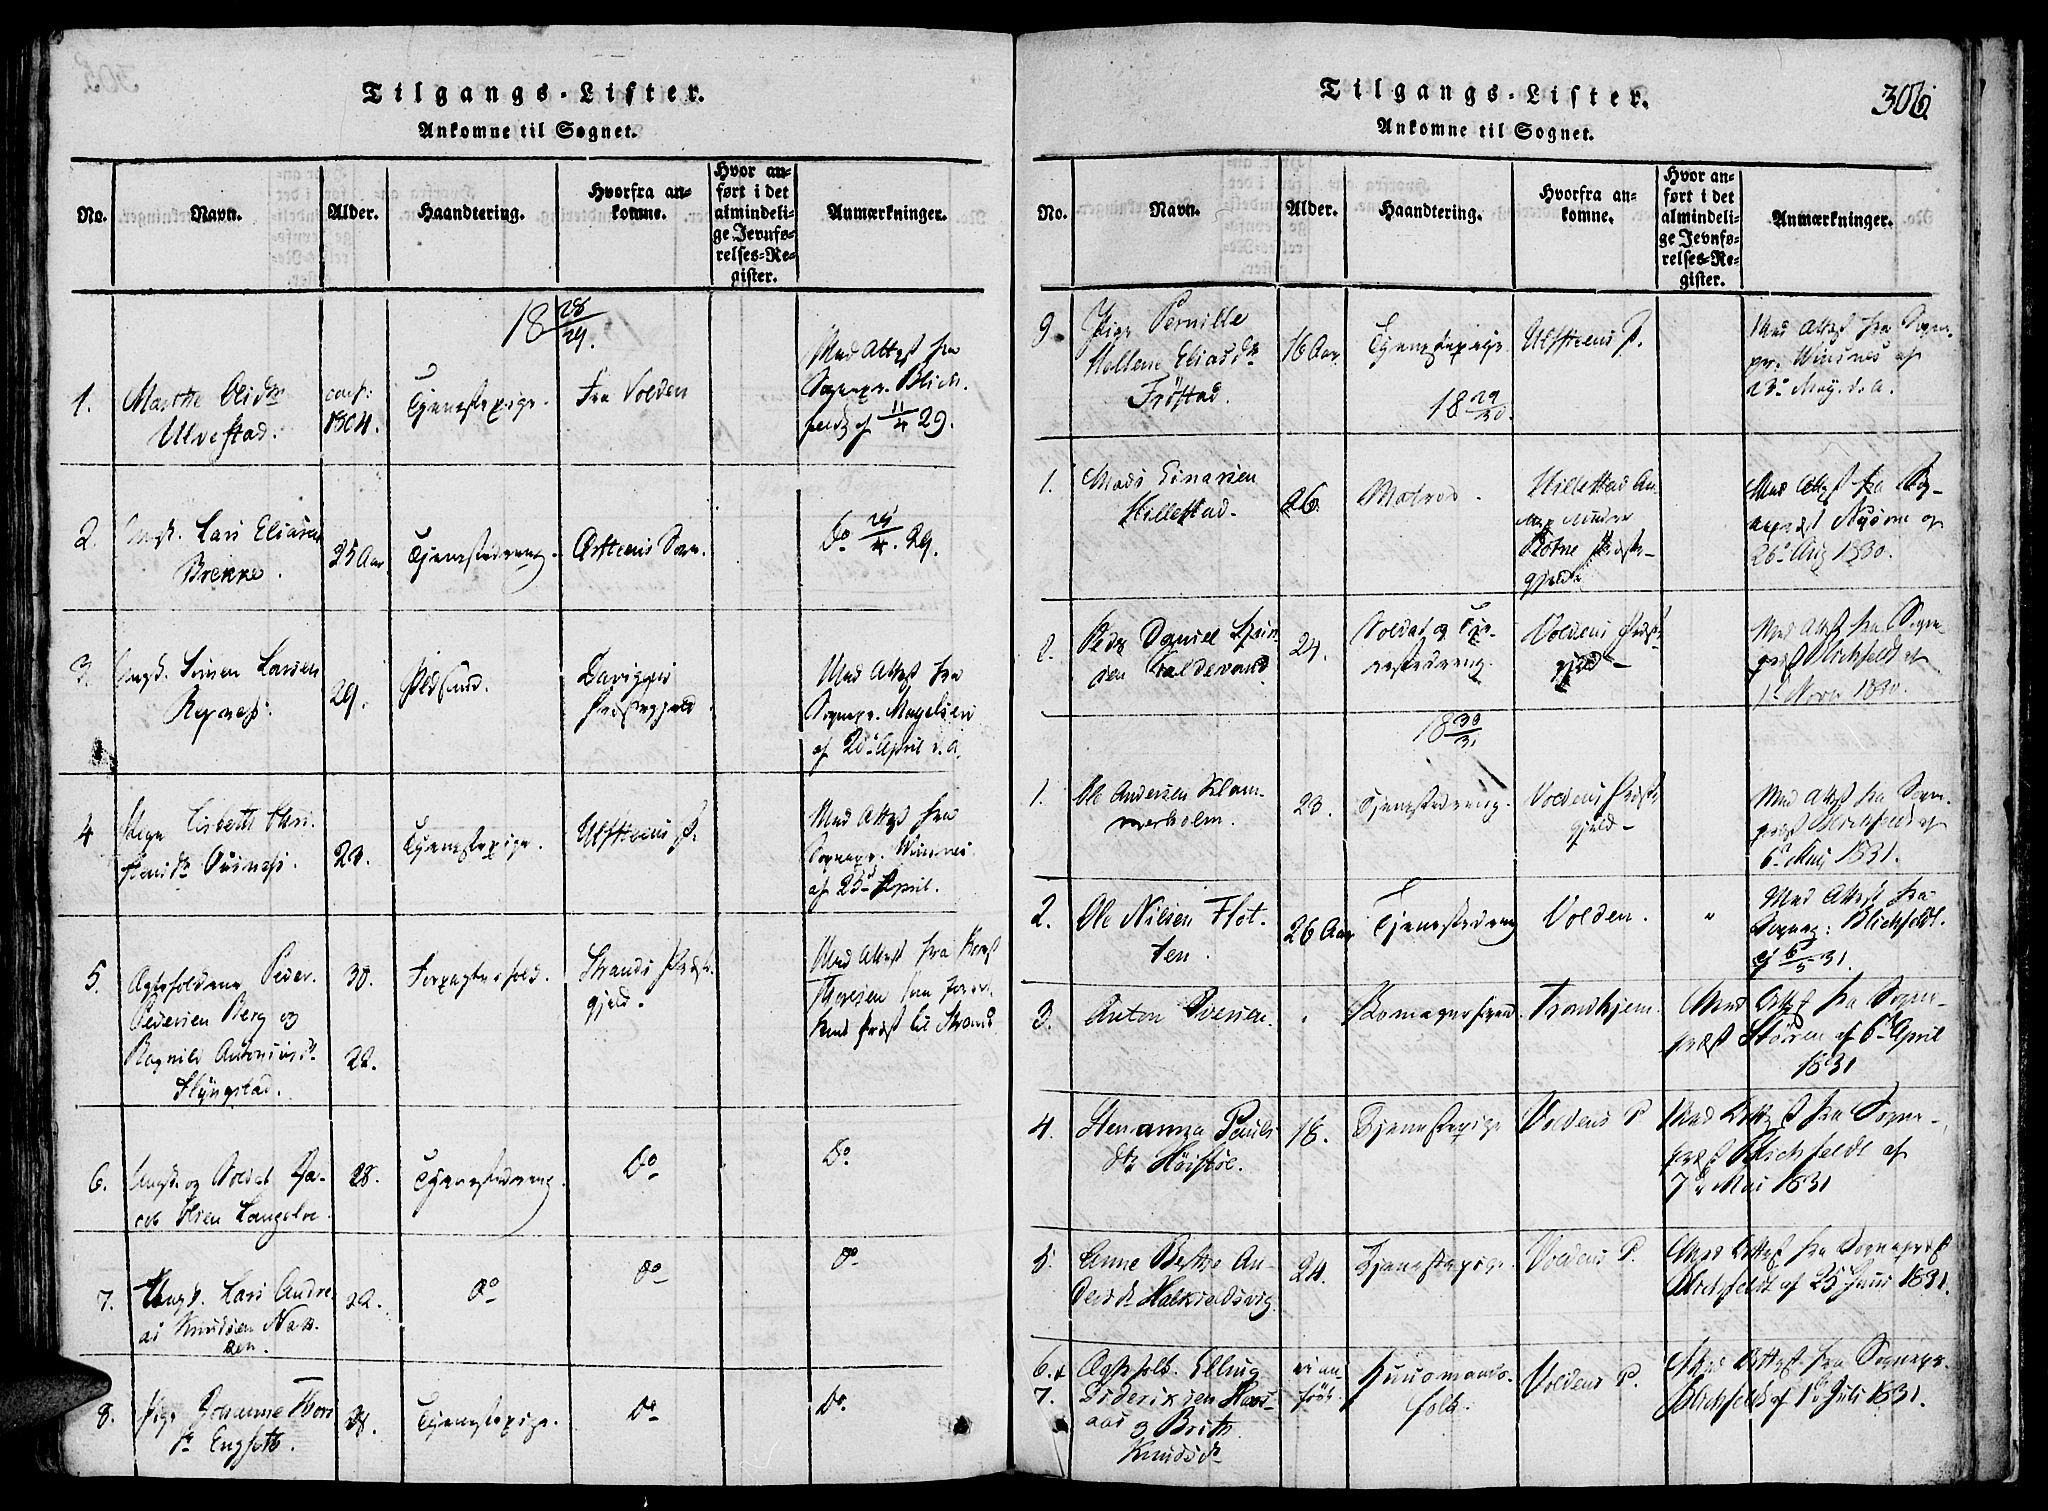 Tilgangs-Lister.
Ankomne til Sognet.
No.
Navn.
Alder.
Haandtering.
Hvorfra an-
komne.
Hvor an-
ført i det
almindeli-
ge Jevnfø-
relses-Re-
gister.
Anmærkninger.
18 28/29.
1.
Marthe Olsdtr
Ulvestad.
conf:
1804.
Tjenestepige.
Fra Volden
Med Attest fra
Sognepr. Blich-
feldt af 11/4 29.
2.
Ungk. Lars Eliasen
Brekke.
25 Aar
Tjenestedreng.
Ørsteens Sogn.
Do 24/4. 29.
3.
Ungk. Simen Larsen
29.
Davigens
Præstegjeld
Med Attest fra
Sognepr. Magelsen
af 20de April d. a.
4
Pige Lisbeth
23.
Tjenestepige.
Ulfsteens P.
Med Attest fra
Sognepr. Winsnes
af 25d April.
5.
Ægtefolkene Peder
Pedersen Berg og
Ragnild Antonisdr
Slyngstad.
30.
22.
Forpagterfolk.
Strands Præste-
gjeld.
Med Attest fra Præst
Thoresen
Præst til Strand
6.
Ungk. og Soldat Ja-
cob Olsen Langelve
28.
Tjenestedreng.
Do
Do
7.
Ungk. Lars Andre-
as Knudsen Nak-
ken.
22.
Do
Do
Do
8.
Pige Johanne Thors
dr Engseth.
Tjenestepige.
Do
Do.
Tilgangs-Lister.
Ankomne til Sognet.
306.
No.
Navn.
Alder.
Haandtering.
Hvorfra an-
komne.
Hvor an-
ført i det
almindeli-
ge Jevnfø-
relses-Re-
gister.
Anmærkninger.
9
Pige Pernille
Hellene Eliasdr
Frøstad.
16 Aar
Tjenestepige.
Ulfsteens P.
Med Attest fra Sogne-
pr. Winsnes af
23de Maij. d. a.
18 29/30.
1.
Mads Einarsen
Hillestad.
26.
Matros.
Hillestad
Præste-
gjeld
Med Attest fra Sog-
nepræst af
26de Aug 1830.
2.
Peder Daniel
Faldevand
24.
Soldat og Tje-
nestedreng.
Voldens Præste
gjeld
Med Attest fra Sogne
præst Blichfeldt af
1de Novr 1830.
18 30/31
1.
Ole Andersen Klam-
merholm.
23.
Tjenestedreng.
Voldens Præste
gjeld
Med Attest fra Sogne-
præst Blichfeldt af
6te Maij 1831.
2.
Ole Nilsen Flot-
ten.
26 Aar
Tjenestedreng
Volden.
"
Med Attest fra
Sognep: Blichfeldt.
af 6/5 31.
3.
Anton Iversen.
Trondhjem.
Med Attest fra Sogne-
præst Støren af 6te April
1831
4.
Henanna Pauls
dr Høistøl.
18.
Tjenestepige
Voldens P.
Med Attest fra Sogne-
præst Blichfeldt af
7de Mai 1831
5.
Anne Berthe An-
dersdr Halkieldsvig
24.
Tjenestepige.
Voldens P.
Med Attest fra Sognepræst
Blichfeldt af 25 Juni 1831.
6. &
7.
Ægtefolk. Elling
Dideriksen Haas-
aas og Brith
Knudsdr
ei an-
ført
Huusmands-
folk.
Voldens P.
Attest fra Sognepr.
Blichfeldt af 1de Juli 1831.